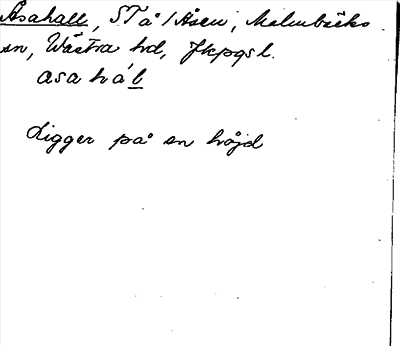 Åsahall, STå/Åsen, Malmbäcks
sn, Wästra hd, Jkpgs l.
asa hál
Ligger på en höjd